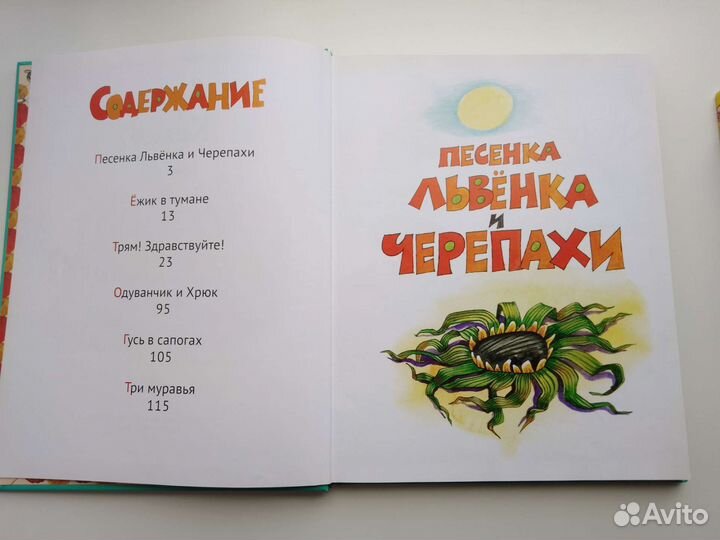 СОДЕРЖАНИЕ
Песенка Львёнка и Черепахи
3
Ёжик в тумане
13
Трям! Здравствуйте!
23
Одуванчик и Хрюк
95
Гусь в сапогах
105
Три муравья
115
ПЕСЕНКА
ЛЬВЁНКА
И
ЧЕРЕПАХИ
Avito